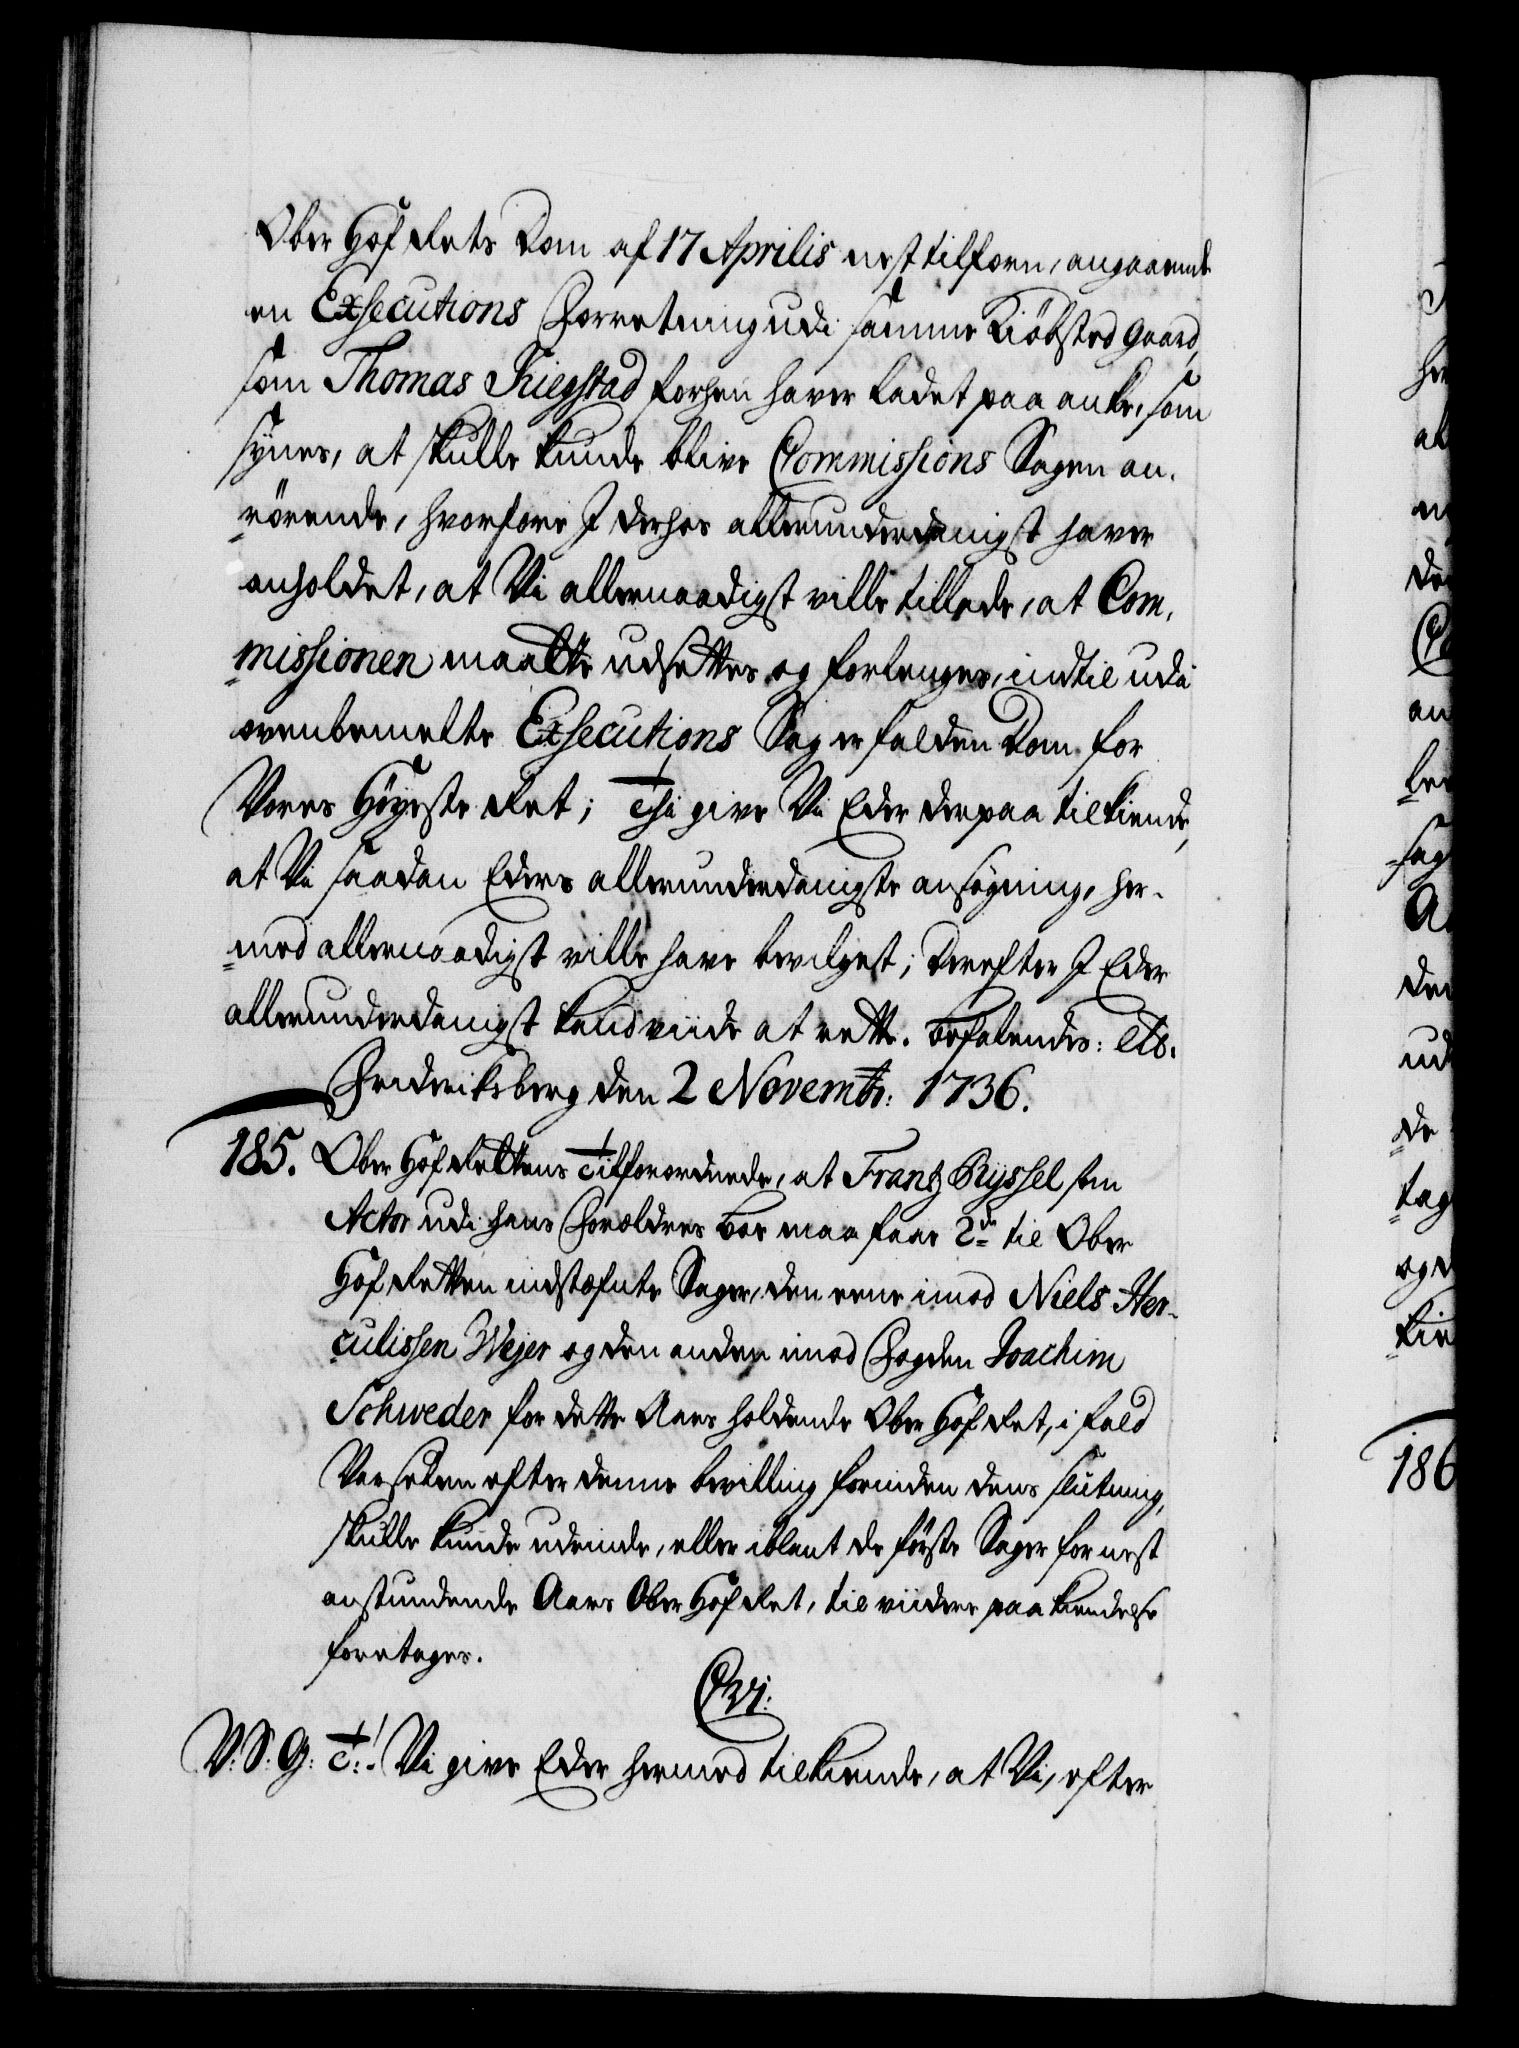 Ober Hof Rets Dom af 17 Aprilis nest tilforn, angaaende
en Exsecutions Forretning udi samme Kiöbsted Gaard,
som Thomas Kiegstad forhen haver ladet paa anke, som
synes, at skulle kunde blive Commissions Sagen an-
rörende, hvorfore I derhos allerunderdanigst haver
anholdet, at Vi allernaadigst ville tillade, at Com-
missionen maatte udsettes og forlenges, indtil udi
ovenbemelte Exsecutions Sag er falden Dom for
Vores Höyeste Ret; Thi give Vi Eder derpaa tilkiende,
at Vi saadan Eders allerunderdanigste ansögning, her-
med allernaadigst ville have bevilget; Derefter I Eder
allerunderdanigst kand viide at rette. Befalendes: etc.
Friderichsberg den 2 Novembr: 1736.
185. Ober Hof Rettens Tilforordnede, at Frantz Ryssel som
Actor udi hans Forældres Boe maa faae 2de til Ober
Hof Retten indstæfnte Sager, den eene imod Niels Her-
culissen Wejer og den anden imod Fogden Joachim
Schweder for dette Aars holdende Ober Hof Ret, i fald
Varselen efter denne bevilling forinden dens slutning,
skulle kunde udrinde, eller iblant de förste Sager for nest
anstundende Aars Ober Hof Ret, til viidere paa kiendelse
foretages.
V. S. G. T: Vi give Eder hermed tilkiende, at Vi, efter
186